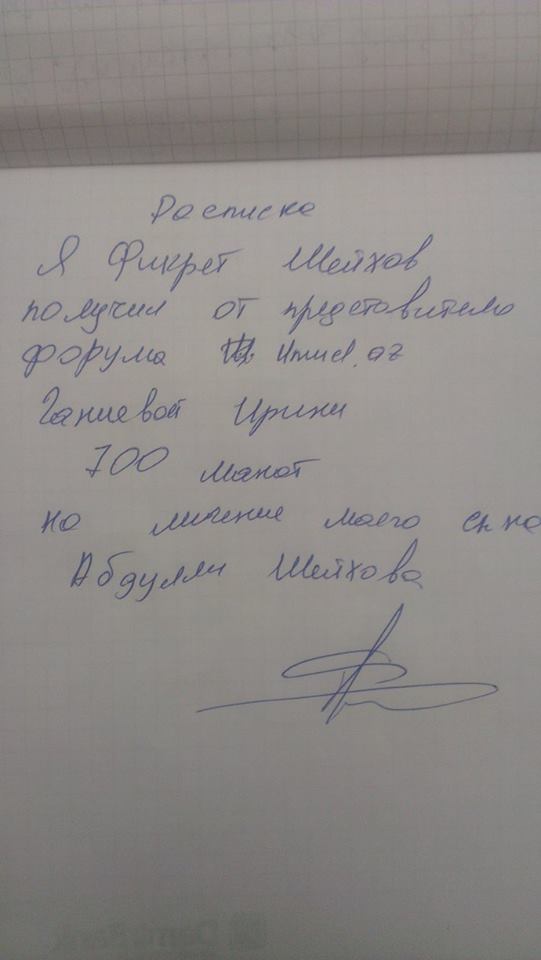 Расписка
Я Фикрет Шейхов
получил от представителя
форума Umid.az
Ганиевой Ирини
700 манот
на личение моего сына
Абдулли Шейхова